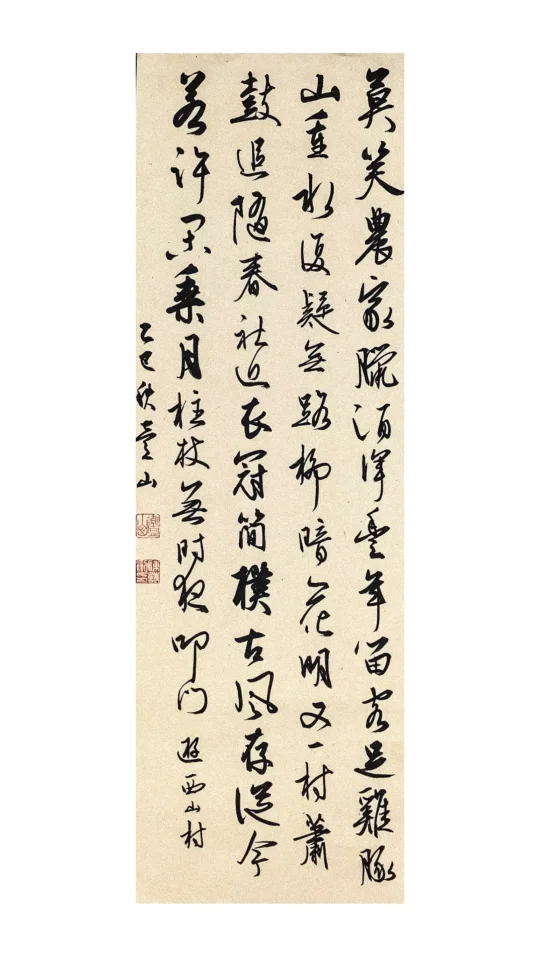 莫笑農家臘酒渾豐年留客足雞豚
山重水復疑無路柳暗花明又一村蕭
鼓追隨春社近衣冠簡樸古風存從今
若許閑乘月柱杖無時夜叩門 遊西山村
乙巳秋山